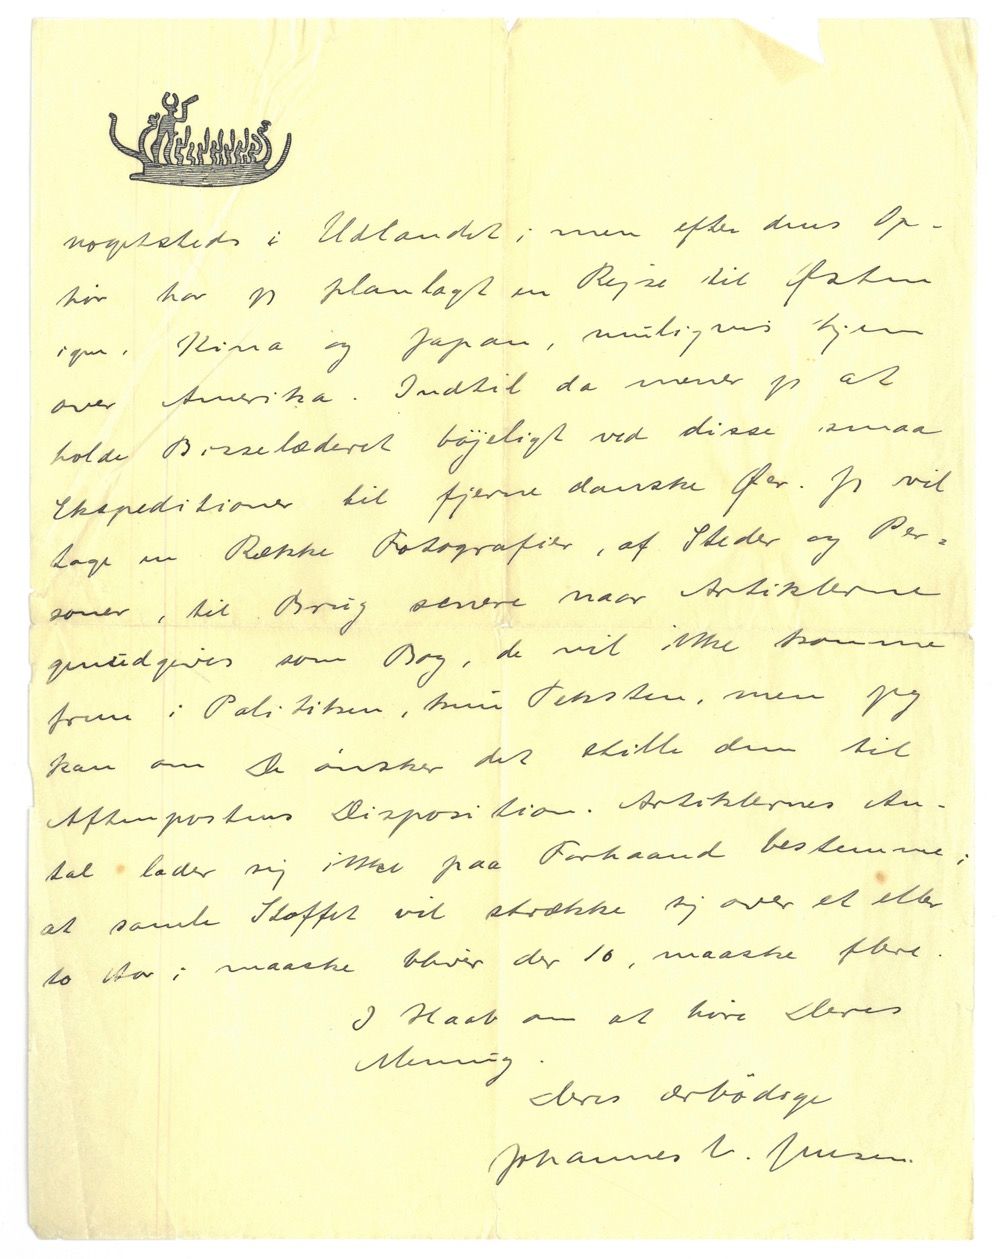 nogetsteds i Udlandet; men efter dens Op-
hør har jeg planlagt en Rejse til Østen
igen. Kina og Japan, muligvis hjem
over Amerika. Indtil da mener jeg at
holde Bisselæderet bøjeligt ved disse smaa
Ekspeditioner til fjerne danske Øer. Jeg vil
tage en Række Fotografier, af Steder og Per=
soner, til Brug senere naar Artiklerne
genudgives som Bog, de vil ikke komme
frem i Politiken, kun Teksten, men jeg
kan om De ønsker det stille dem til
Aftenpostens Disposition. Artiklernes An-
tal lader sig ikke paa Forhaand bestemme;
at samle Stoffet vil strække sig over et eller
to Aar; maaske bliver der 10, maaske flere.
I Haab om at høre Deres
Mening.
Deres ærbødige
Johannes V. Jensen.